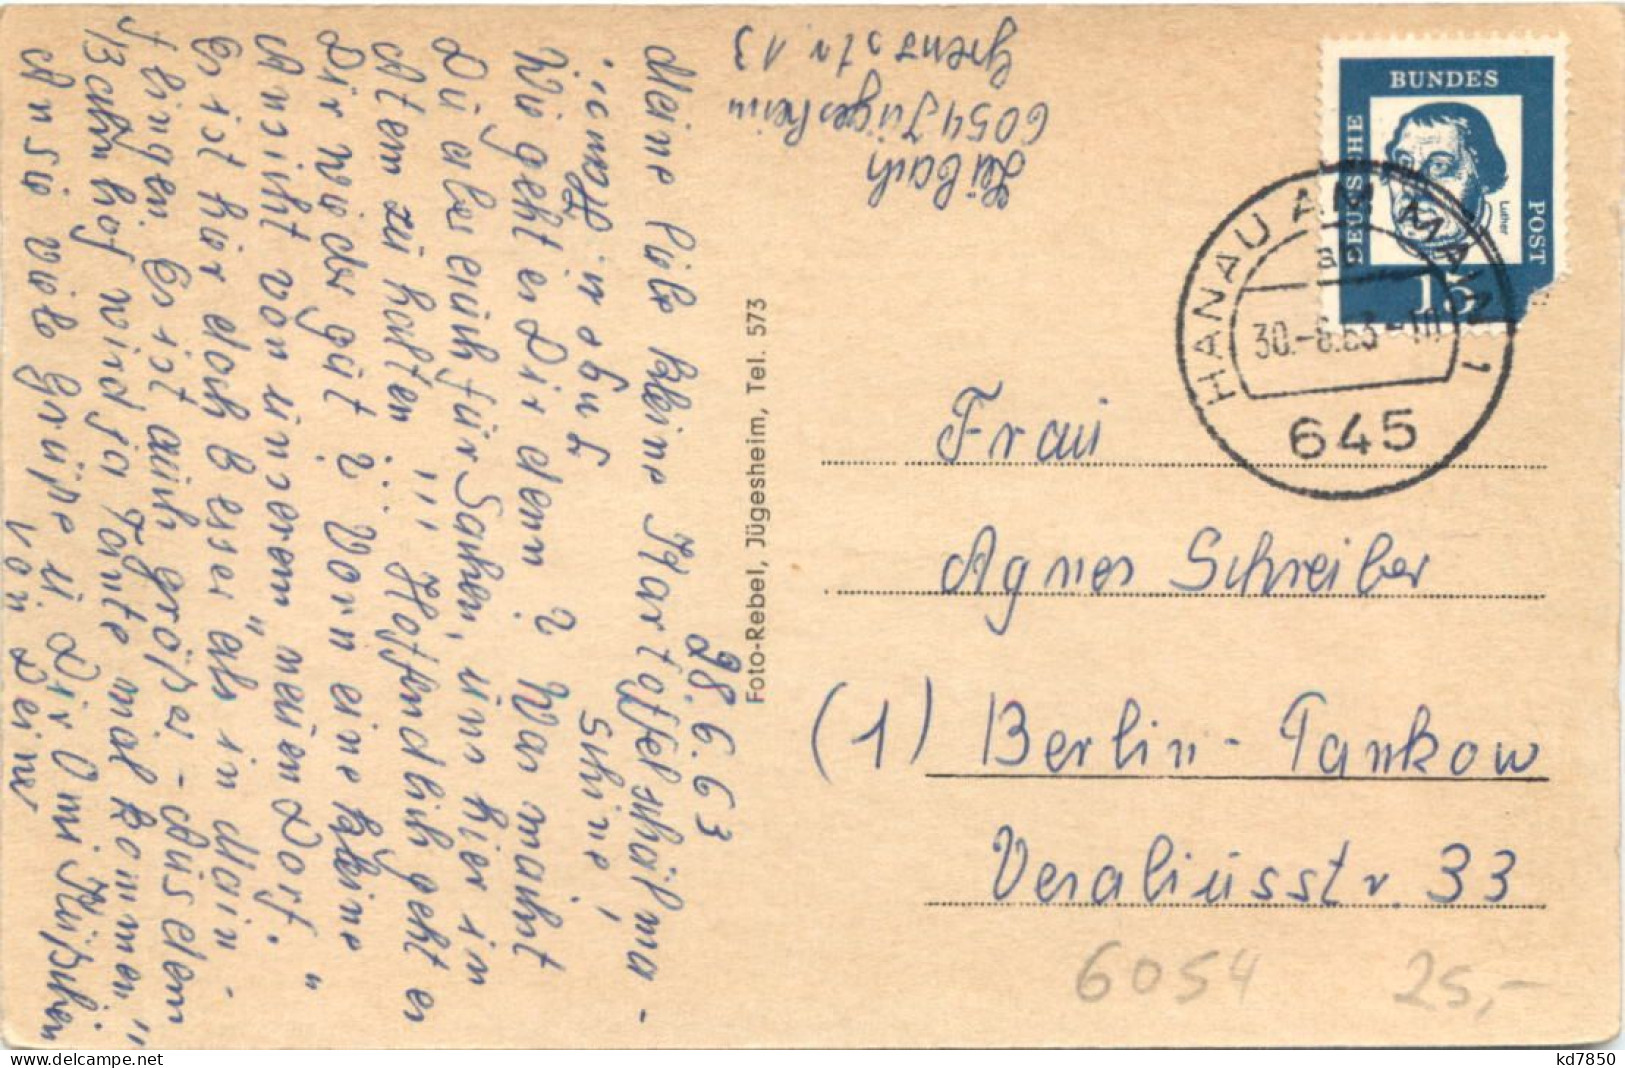 28.6.63
Meine liebe kleine Kartoffelschälma-
schine!
Wie geht es Dir denn? Was macht
Du aber auch für Sachen, uns hier in
Atem zu halten!!! Hoffendlich geht es
Dir wieder gut? Vorn eine kleine
Ansicht von unserem "neuen Dorf."
Es ist hier doch besser als in Main-
flingen. Es ist auch größer. - "Aus dem
Bahnhof wird ja Tante mal kommen"
Also viele Grüße u. Dir Omi Küßchen
von Deine
Leibach
6054 Jügesheim
Grenzstr. 13
Foto-Rebel, Jügesheim, Tel. 573
DEUTSCHE
BUNDES
POST
Luther
15
HANAU AM MAIN 1
a
30.-6.63-10
645
Frau
Agnes Schreiber
(1) Berlin-Pankow
Vesaliusstr. 33
6054 25,-
kd7850